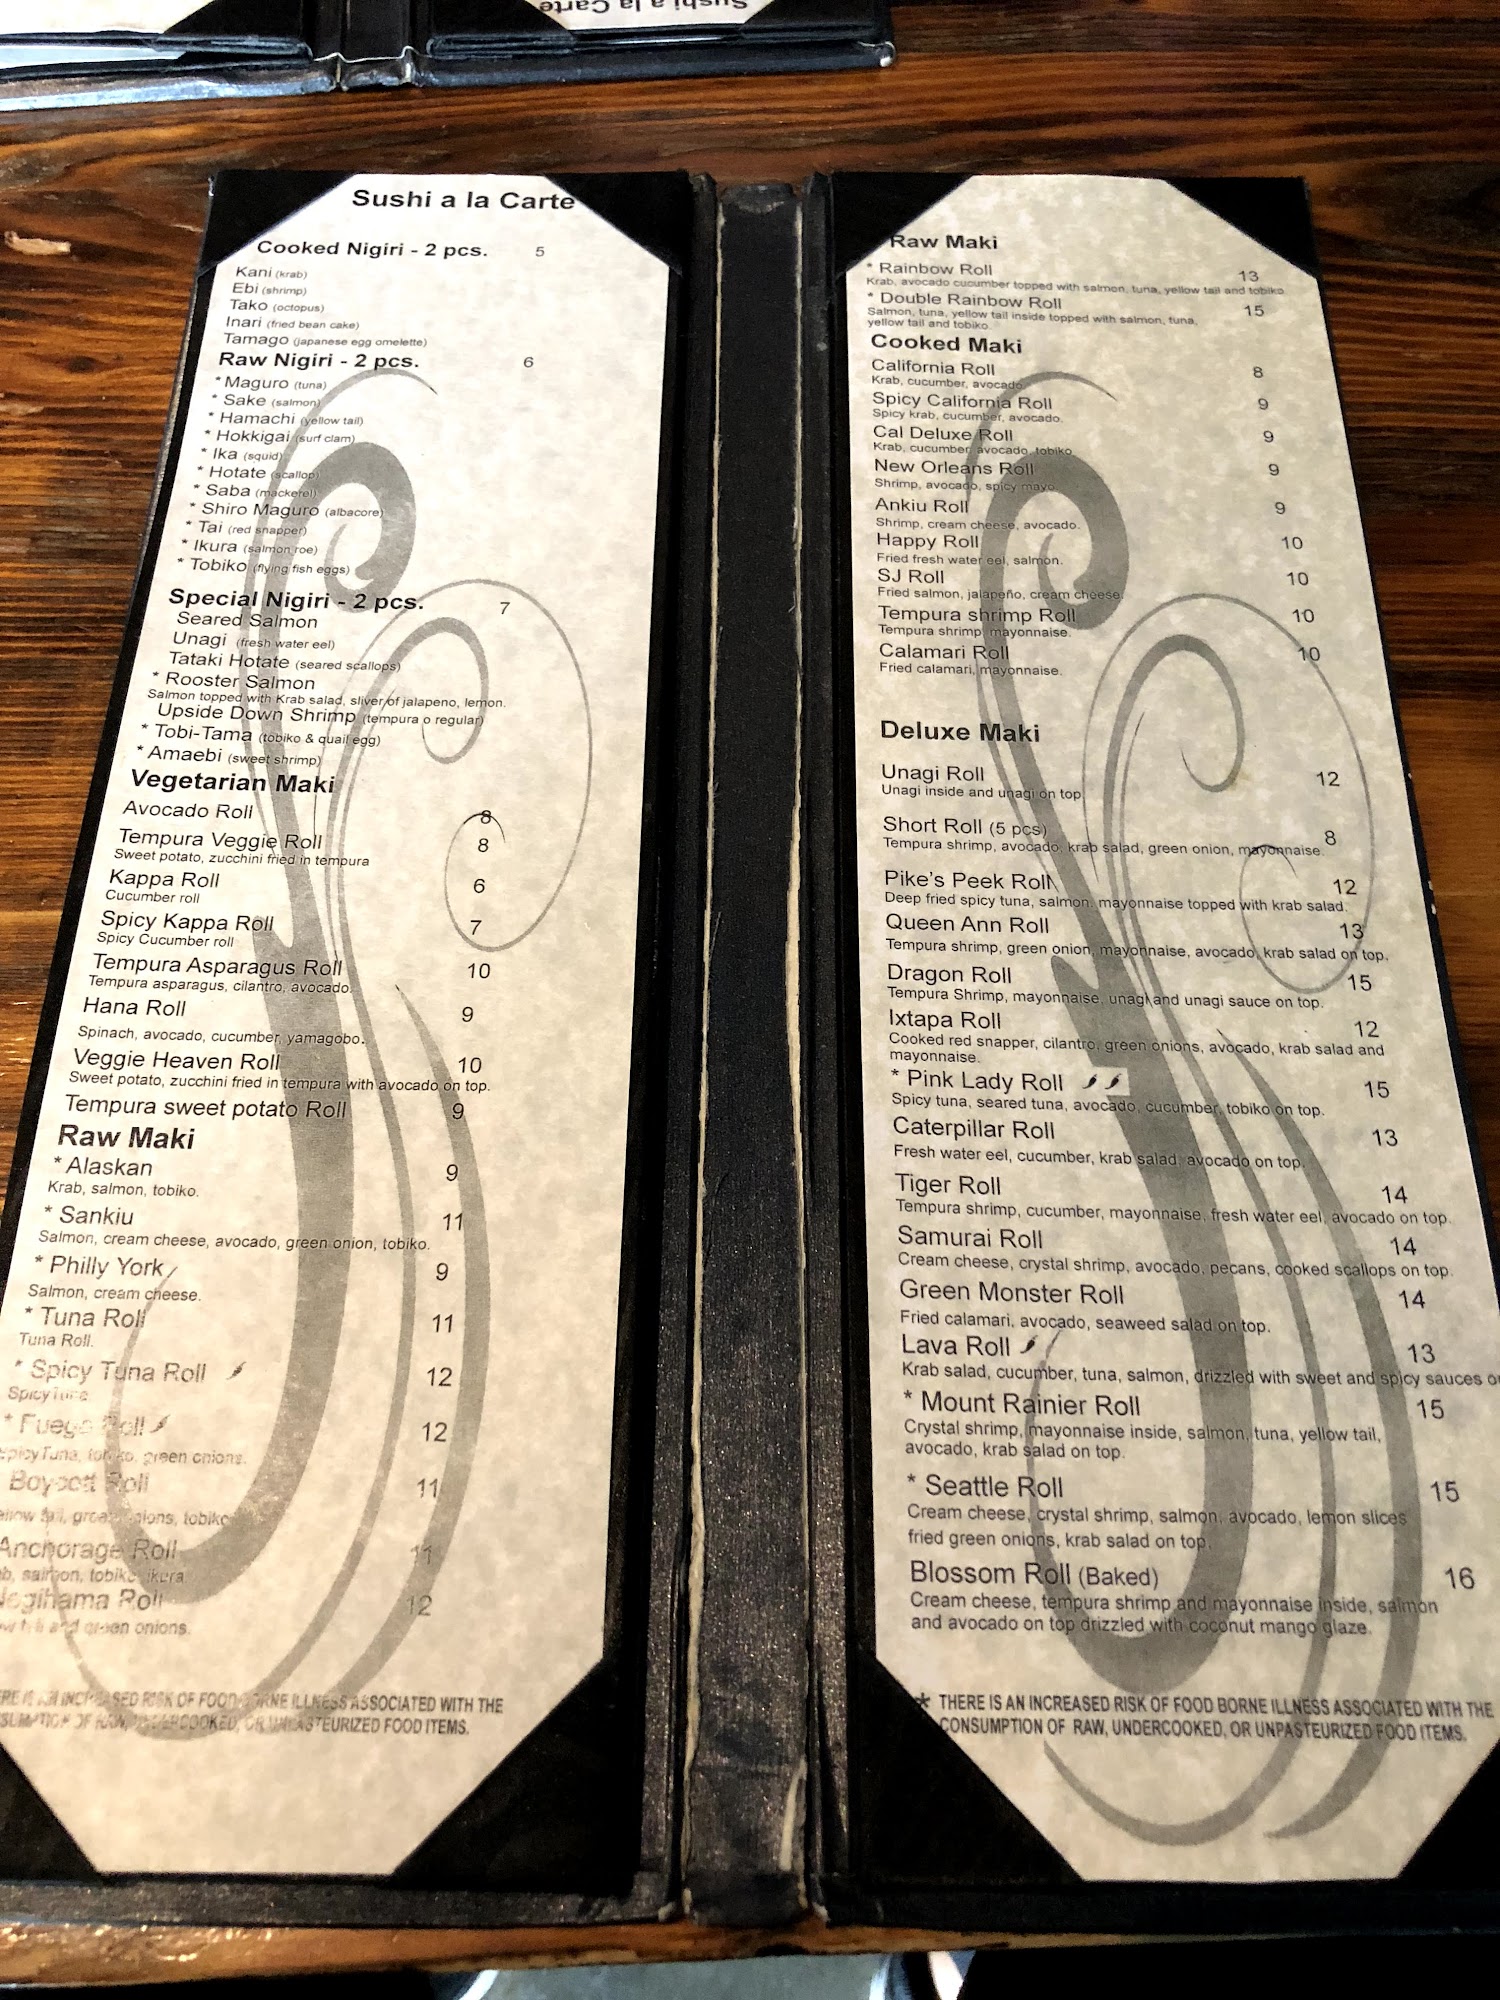 Sushi a la Carte
Sushi a la Carte
Cooked Nigiri - 2 pcs. 5
Kani (krab)
Ebi (shrimp)
Tako (octopus)
Inari (fried bean cake)
Tamago (japanese egg omelette)
Raw Nigiri - 2 pcs. 6
* Maguro (tuna)
* Sake (salmon)
* Hamachi (yellow tail)
* Hokkigai (surf clam)
* Ika (squid)
* Hotate (scallop)
* Saba (mackerel)
* Shiro Maguro (albacore)
* Tai (red snapper)
* Ikura (salmon roe)
* Tobiko (flying fish eggs)
Special Nigiri - 2 pcs. 7
Seared Salmon
Unagi (fresh water eel)
Tataki Hotate (seared scallops)
* Rooster Salmon
Salmon topped with Krab salad, sliver of jalapeno, lemon.
Upside Down Shrimp (tempura o regular)
* Tobi-Tama (tobiko & quail egg)
* Amaebi (sweet shrimp)
Vegetarian Maki
Avocado Roll 8
Tempura Veggie Roll 8
Sweet potato, zucchini fried in tempura
Kappa Roll 6
Cucumber roll
Spicy Kappa Roll 7
Spicy Cucumber roll
Tempura Asparagus Roll 10
Tempura asparagus, cilantro, avocado.
Hana Roll 9
Spinach, avocado, cucumber, yamagobo.
Veggie Heaven Roll 10
Sweet potato, zucchini fried in tempura with avocado on top.
Tempura sweet potato Roll 9
Raw Maki
* Alaskan 9
Krab, salmon, tobiko.
* Sankiu 11
Salmon, cream cheese, avocado, green onion, tobiko.
* Philly York 9
Salmon, cream cheese.
* Tuna Roll 11
Tuna Roll.
* Spicy Tuna Roll 12
Spicy Tuna.
* Fuego Roll 12
Spicy Tuna, tobiko, green onions.
Boycott Roll 11
tail, green onions, tobiko
Anchorage Roll 11
salmon, tobiko, ikura.
Negihama Roll 12
tail and green onions.
IS AN INCREASED RISK OF FOOD BORNE ILLNESS ASSOCIATED WITH THE
OF RAW, UNDERCOOKED, OR UNPASTEURIZED FOOD ITEMS.
Raw Maki
* Rainbow Roll 13
Krab, avocado cucumber topped with salmon, tuna, yellow tail and tobiko
* Double Rainbow Roll 15
Salmon, tuna, yellow tail inside topped with salmon, tuna,
yellow tail and tobiko.
Cooked Maki
California Roll 8
Krab, cucumber, avocado.
Spicy California Roll 9
Spicy krab, cucumber, avocado.
Cal Deluxe Roll 9
Krab, cucumber, avocado, tobiko
New Orleans Roll 9
Shrimp, avocado, spicy mayo.
Ankiu Roll 9
Shrimp, cream cheese, avocado.
Happy Roll 10
Fried fresh water eel, salmon.
SJ Roll 10
Fried salmon, jalapeño, cream cheese.
Tempura shrimp Roll 10
Tempura shrimp, mayonnaise.
Calamari Roll 10
Fried calamari, mayonnaise.
Deluxe Maki
Unagi Roll 12
Unagi inside and unagi on top.
Short Roll (5 pcs) 8
Tempura shrimp, avocado, krab salad, green onion, mayonnaise.
Pike's Peek Roll 12
Deep fried spicy tuna, salmon, mayonnaise topped with krab salad.
Queen Ann Roll 13
Tempura shrimp, green onion, mayonnaise, avocado, krab salad on top.
Dragon Roll 15
Tempura Shrimp, mayonnaise, unagi and unagi sauce on top.
Ixtapa Roll 12
Cooked red snapper, cilantro, green onions, avocado, krab salad and
mayonnaise.
* Pink Lady Roll 15
Spicy tuna, seared tuna, avocado, cucumber, tobiko on top.
Caterpillar Roll 13
Fresh water eel, cucumber, krab salad, avocado on top.
Tiger Roll 14
Tempura shrimp, cucumber, mayonnaise, fresh water eel, avocado on top.
Samurai Roll 14
Cream cheese, crystal shrimp, avocado, pecans, cooked scallops on top.
Green Monster Roll 14
Fried calamari, avocado, seaweed salad on top.
Lava Roll 13
Krab salad, cucumber, tuna, salmon, drizzled with sweet and spicy sauces
* Mount Rainier Roll 15
Crystal shrimp, mayonnaise inside, salmon, tuna, yellow tail,
avocado, krab salad on top.
* Seattle Roll 15
Cream cheese, crystal shrimp, salmon, avocado, lemon slices
fried green onions, krab salad on top.
Blossom Roll (Baked) 16
Cream cheese, tempura shrimp and mayonnaise inside, salmon
and avocado on top drizzled with coconut mango glaze.
* THERE IS AN INCREASED RISK OF FOOD BORNE ILLNESS ASSOCIATED WITH THE
CONSUMPTION OF RAW, UNDERCOOKED, OR UNPASTEURIZED FOOD ITEMS.